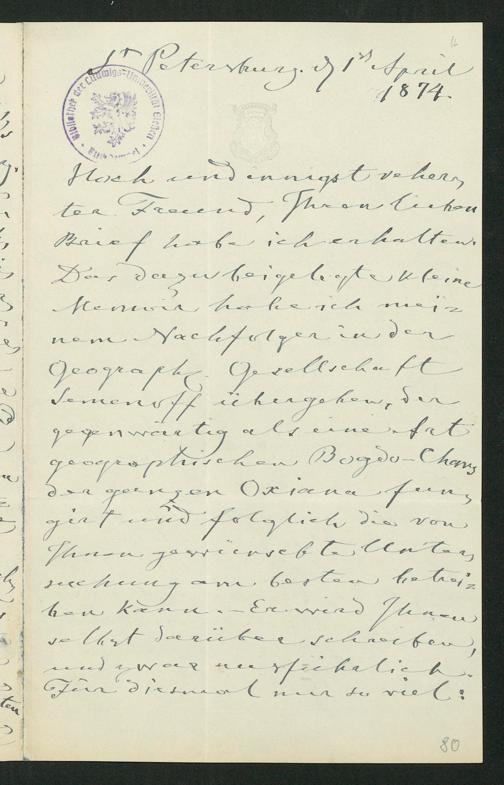 St Petersburg. d 1st April
1874.
Bibliothek der Ludwigs-Universität Giessen
Hoch und innigst vereher,
ter Freund, Ihren lieben
Brief habe ich erhalten.
Das dazu beigelegte kleine
Memoir habe ich mei=
nem Nachfolger in der
Geograph. Gesellschaft
Semenoff übergeben, der
gegenwärtig als eine Art
geographischen Bogdo-Chans
der ganzen Oxiana fun,
girt und folglich die von
Ihnen gewünschte Unter,
suchung am besten betrei=
ben kann. - Er wird Ihnen
selbst darüber schreiben,
und zwar ausführlich.
Für diesmal nur so viel:
80